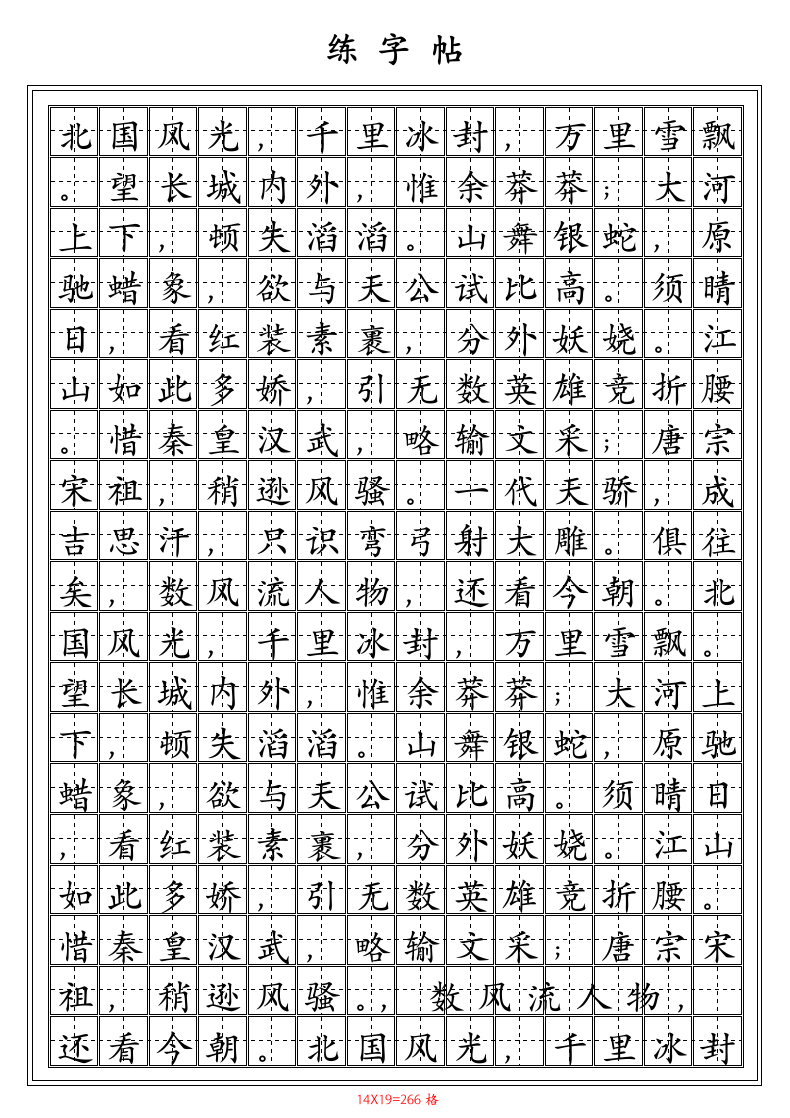 练字帖
北国风光，千里冰封，万里雪飘
。望长城内外，惟余莽莽；大河
上下，顿失滔滔。山舞银蛇，原
驰蜡象，欲与天公试比高。须晴
日，看红装素裹，分外妖娆。江
山如此多娇，引无数英雄竞折腰
。惜秦皇汉武，略输文采；唐宗
宋祖，稍逊风骚。一代天骄，成
吉思汗，只识弯弓射大雕。俱往
矣，数风流人物，还看今朝。北
国风光，千里冰封，万里雪飘。
望长城内外，惟余莽莽；大河上
下，顿失滔滔。山舞银蛇，原驰
蜡象，欲与天公试比高。须晴日
，看红装素裹，分外妖娆。江山
如此多娇，引无数英雄竞折腰。
惜秦皇汉武，略输文采；唐宗宋
祖，稍逊风骚。，数风流人物，
还看今朝。北国风光，千里冰封
14X19=266 格